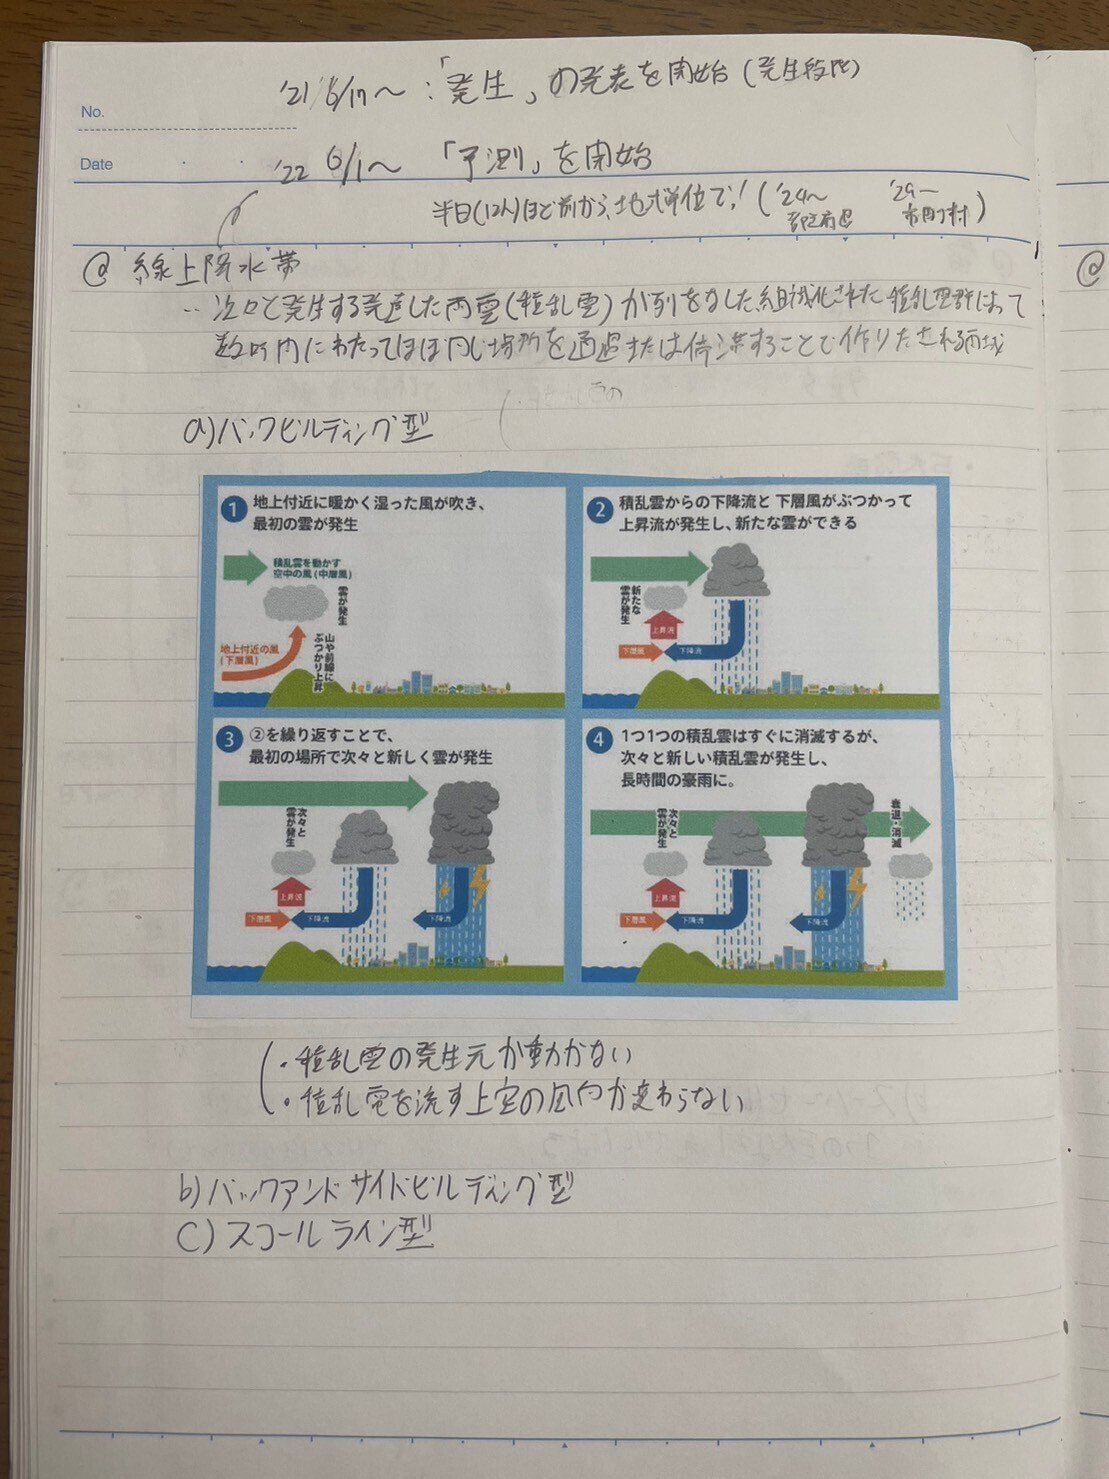 '21 6/17～:「発生」の発表を開始(発生段階)
No.
Date
'22 6/1～ 「予測」を開始
半日(12h)ほど前から、地域単位で!('24～ 都道府県 '29～ 市町村)
@ 線上降水帯
… 次々と発生する発達した雨雲(積乱雲)が列をなした組織化された積乱雲群によって
数時間にわたってほぼ同じ場所を通過または停滞することで作りだされる雨域
a)バックビルディング型
1 地上付近に暖かく湿った風が吹き、
最初の雲が発生
積乱雲を動かす
空中の風(中層風)
雲が発生
地上付近の風
(下層風)
山や前線に
ぶつかり上昇
2 積乱雲からの下降流と 下層風がぶつかって
上昇流が発生し、新たな雲ができる
新たな
雲が発生
上昇流
下層風
下降流
3 ②を繰り返すことで、
最初の場所で次々と新しく雲が発生
次々と
雲が発生
上昇流
下層風
下降流
下降流
4 1つ1つの積乱雲はすぐに消滅するが、
次々と新しい積乱雲が発生し、
長時間の豪雨に。
次々と
雲が発生
衰退・消滅
上昇流
下層風
下降流
下降流
・積乱雲の発生元が動かない
・積乱雲を流す上空の風向が変わらない
b)バックアンドサイドビルディング型
C)スコールライン型
@